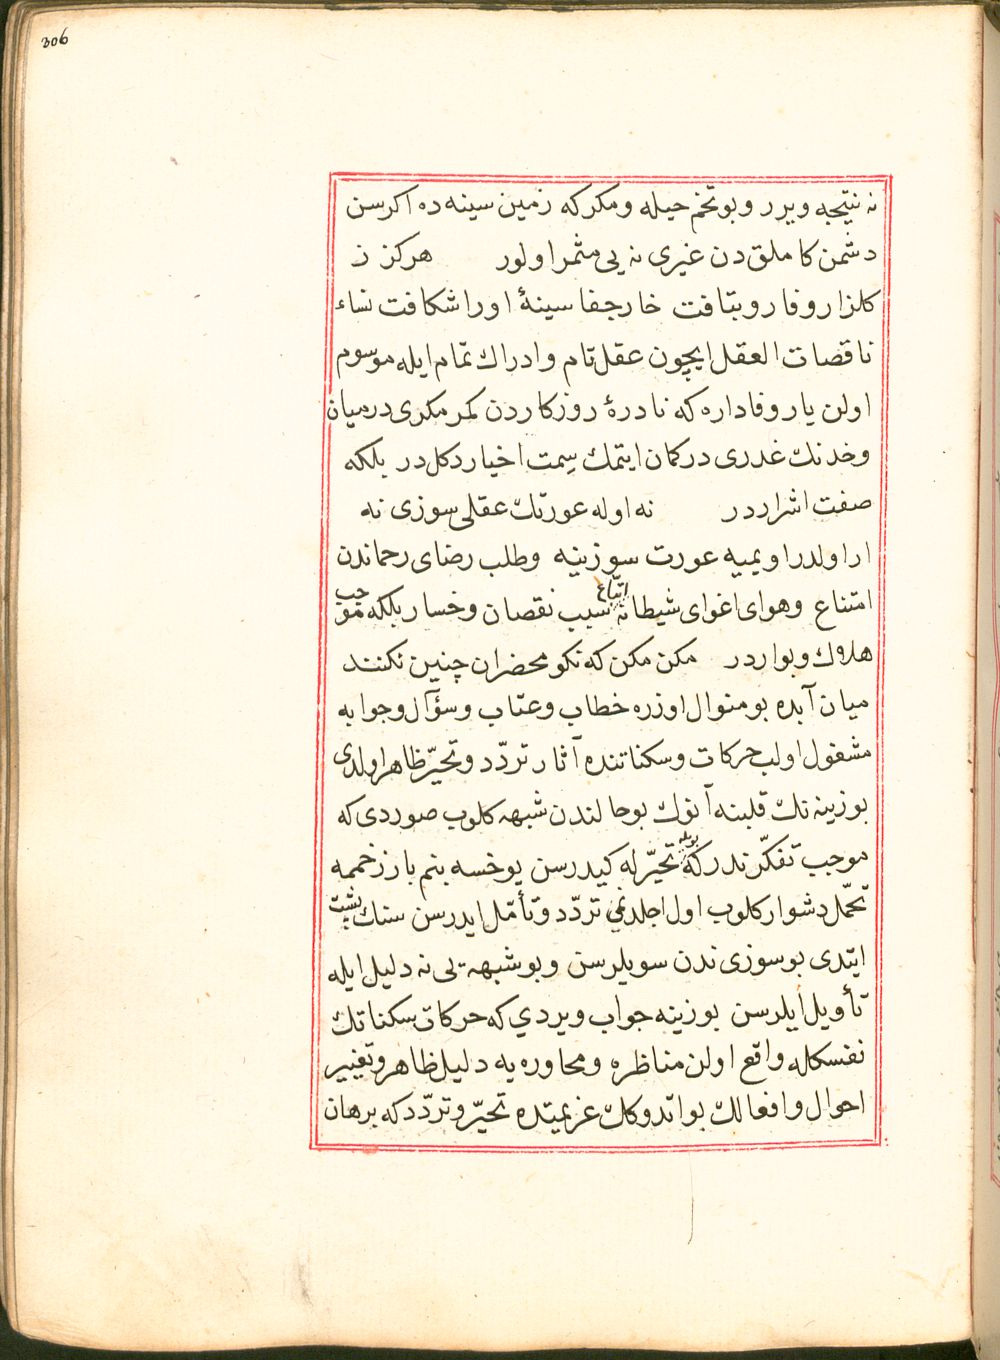 306
نه نتیجه ویرر وبو تخم حیله ومکر که زمین سینه ده اکرسن
دشمن کاملق دن غیری نه یی مثمر اولور هرکز ز
کلزار وفا رو بتافت خار جفا سینهٔ اورا شکافت نساء
ناقصات العقل ایچون عقل تام وادراك تمّام ایله موسوم
اولن یار وفاداره که نادرهٔ روزکاردن کمر مکری درمیان
وخدنك غدری درکمان ایتمك سِمت اخیار دکل در بلکه
صفت اشرار در نه اوله عورتك عقلی سوزی نه
ار اولدر اویمیه عورت سوزینه وطلب رضای رحماندن
امتناع وهوای اغوای شیطانه اتّباع سبب نقصان وخسار بلکه موجب
هلاك وبوار در مکن مکن که نکو محضران چنین نکنند
میان آبده بو منوال اوزره خطاب وعتاب وسؤال وجوابه
مشغول اولب حرکات وسکناتنده آثار تردّد وتحیّر ظاهر اولدی
بوزینه نك قلبنه آنوك بو حالندن شبهه کلوب صوردی که
موجب تفکّر ندر که بویله تحیّرله کیدرسن یوخسه بنم بار زخممه
تحمّل دشوار کلوب اول اجلدنمی تردّد وتأمّل ایدرسن سنك پشت
ایتدی بو سوزی ندن سویلرسن وبو شبهه یی نه دلیل ایله
تأویل ایلرسن بوزینه جواب ویردي که حرکات سکناتك
نفسکله واقع اولن مناظره ومحاوره یه دلیل ظاهر وتغییر
احوال وافعالك بو اتدوکك عزیمتده تحیّر وتردّد که برهان